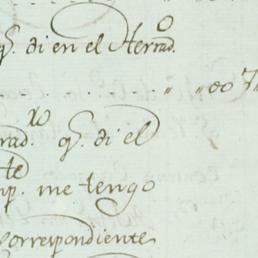 q.ᵉ di en el Herrad.ᵒ
rad.ʳᵒ q.ᵉ di el
me tengo
Correspondiente